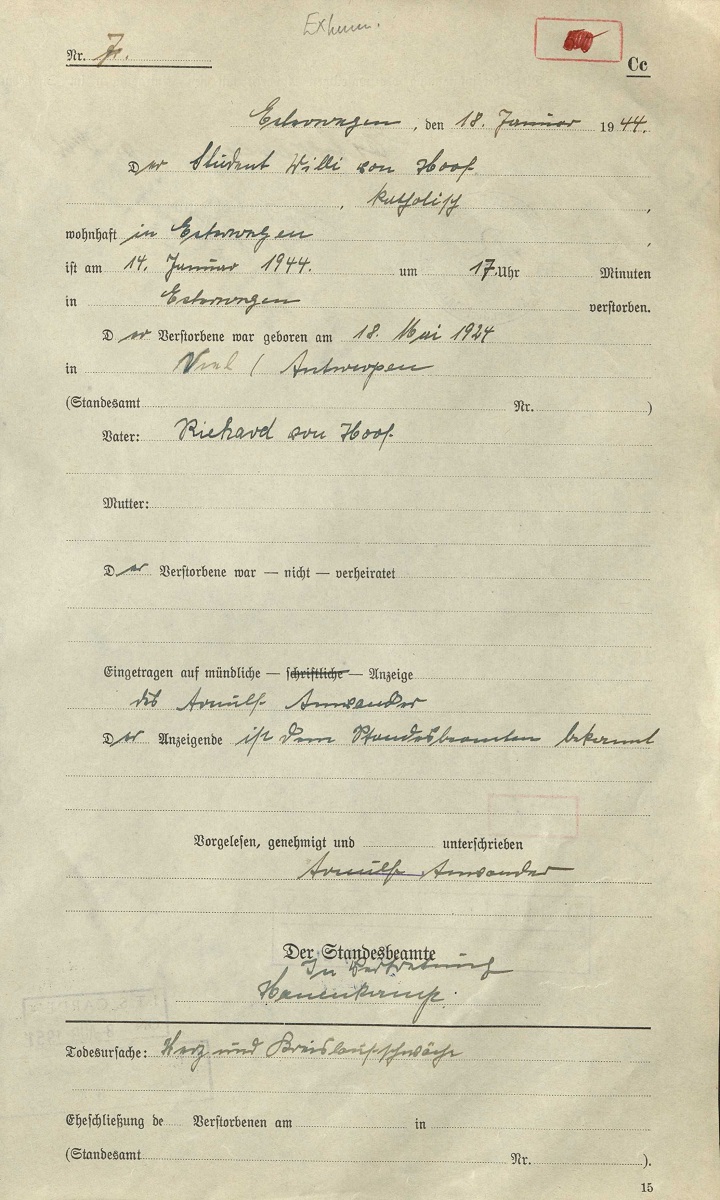 Exhum.
Nr. 7.
Cc
Esterwegen, den 18. Januar 1944.
Der Student Willi von Hoof
, katholisch,
wohnhaft in Esterwegen,
ist am 14. Januar 1944. um 17 Uhr Minuten
in Esterwegen verstorben.
Der Verstorbene war geboren am 18. Mai 1924
in / Antwerpen
(Standesamt Nr. )
Vater: Richard von Hoof
Mutter:
Der Verstorbene war — nicht — verheiratet
Eingetragen auf mündliche — schriftliche — Anzeige
des Arnulf Anwander
Der Anzeigende ist dem Standesbeamten bekannt
Vorgelesen, genehmigt und unterschrieben
Arnulf Anwander
Der Standesbeamte
In Vertretung
Todesursache: Herz und Kreislaufschwäche
Eheschließung de Verstorbenen am in
(Standesamt Nr. ).
15